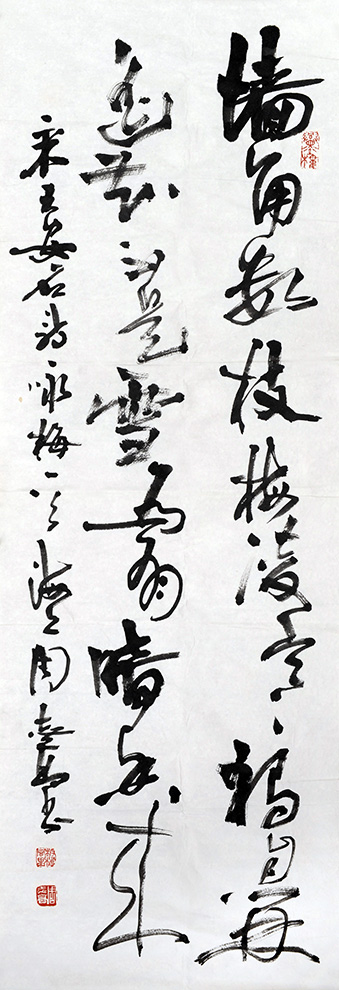 墙角数枝梅凌寒獨自開
遥知不是雪為有暗香来
宋王安石诗咏梅一首 周 书